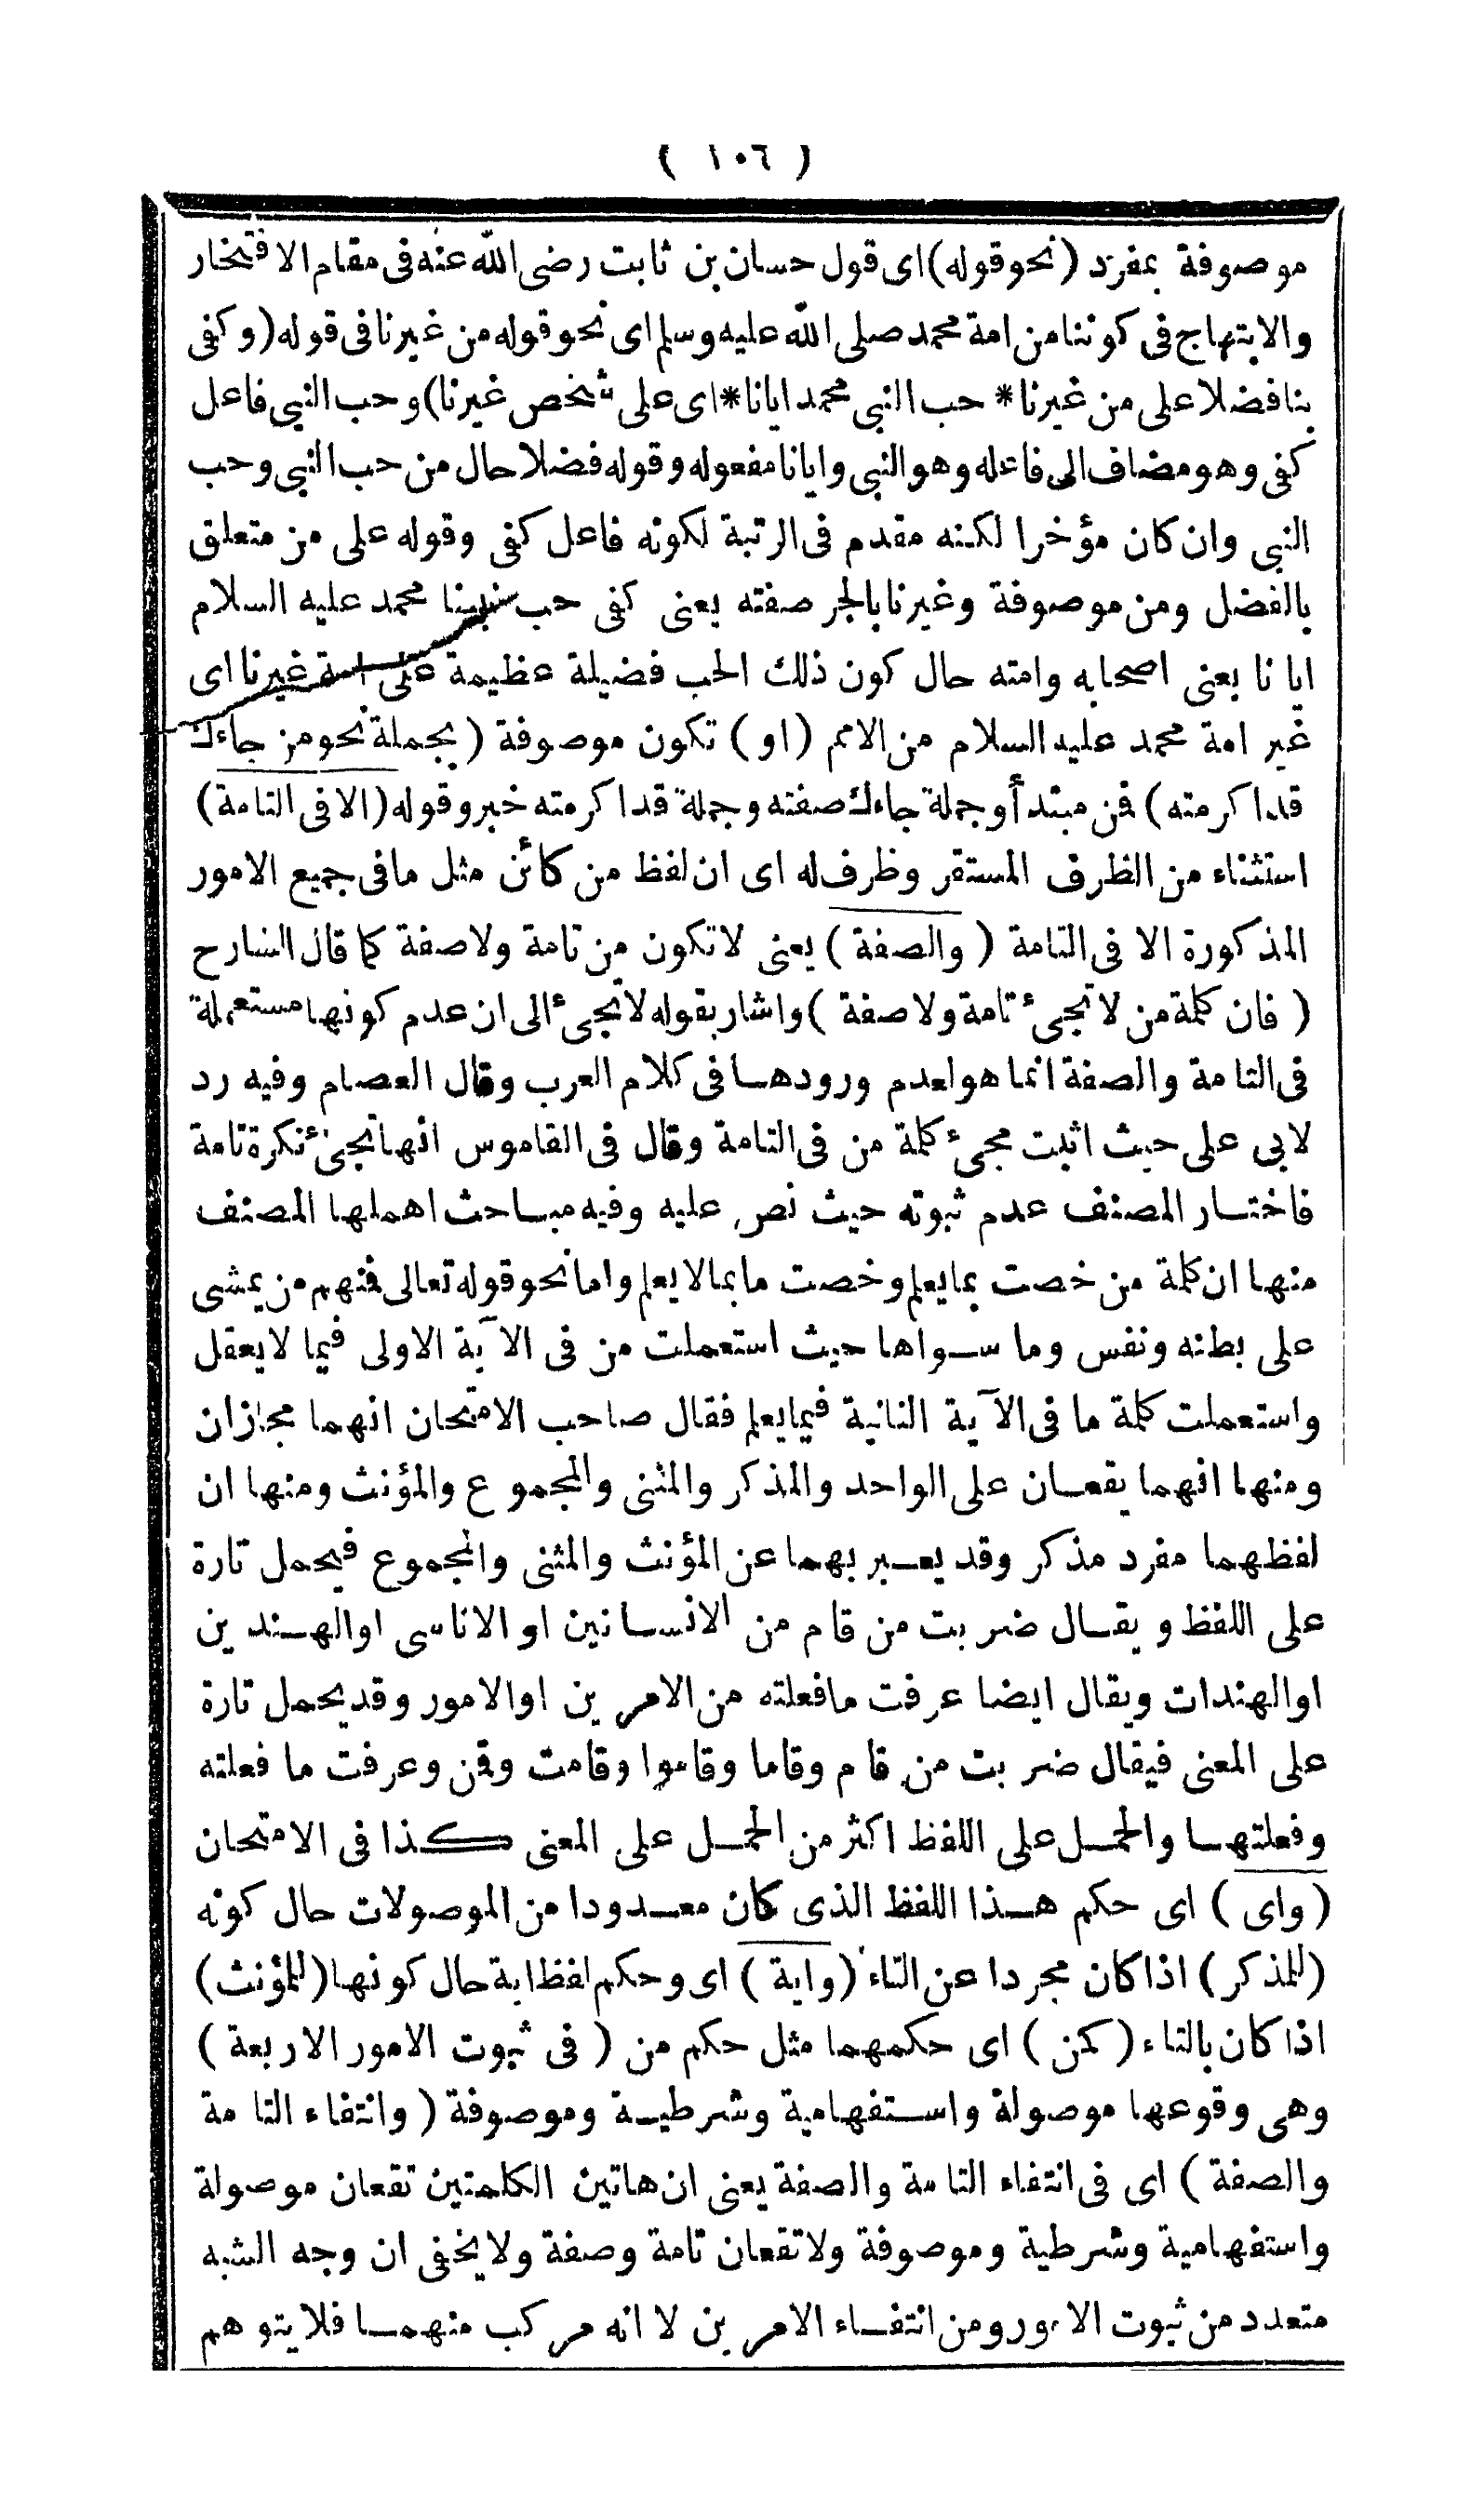 ( ١٠٦ )
موصوفة بمفرد (نحو قوله) اى قول حسان بن ثابت رضى الله عنه فى مقام الافتخار
والابتهاج فى كوننا من امة محمد صلى الله عليه وسلم اى نحو قوله من غيرنا فى قوله (وكفى
بنا فضلا على من غيرنا * حب النبى محمد ايانا * اى على شخص غيرنا) وحب النبى فاعل
كفى وهو مضاف الى فاعله وهو النبى وايانا مفعوله وقوله فضلا حال من حب النبى وحب
النبى وان كان مؤخرا لكنه مقدم فى الرتبة لكونه فاعل كفى وقوله على من متعلق
بالفضل ومن موصوفة وغيرنا بالجر صفته يعنى كفى حب نبينا محمد عليه السلام
ايانا يعنى اصحابه وامته حال كون ذلك الحب فضيلة عظيمة على امة غيرنا اى
غير امة محمد عليه السلام من الامم (او) تكون موصوفة (بجملة نحو من جاءك
قد اكرمته) فمن مبتدأ وجملة جاءك صفته وجملة قد اكرمته خبر وقوله (الا فى التامة)
استثناء من الظرف المستقر وظرف له اى ان لفظ من كائن مثل ما فى جميع الامور
المذكورة الا فى التامة (والصفة) يعنى لا تكون من تامة ولا صفة كما قال الشارح
(فان كلمة من لا تجىء تامة ولا صفة) واشار بقوله لا تجىء الى ان عدم كونها مستعملة
فى التامة والصفة انما هو لعدم ورودها فى كلام العرب وقال العصام وفيه رد
لابى على حيث اثبت مجىء كلمة من فى التامة وقال فى القاموس انها تجىء نكرة تامة
فاختار المصنف عدم ثبوته حيث نص عليه وفيه مباحث اهملها المصنف
منها ان كلمة من خصت بما يعلم وخصت ما بما لا يعلم واما نحو قوله تعالى فمنهم من يمشى
على بطنه ونفس وما سواها حيث استعملت من فى الآية الاولى فيما لا يعقل
واستعملت كلمة ما فى الآية الثانية فيما يعلم فقال صاحب الامتحان انهما مجازان
ومنها انهما يقعان على الواحد والمذكر والمثنى والمجموع والمؤنث ومنها ان
لفظهما مفرد مذكر وقد يعبر بهما عن المؤنث والمثنى والمجموع فيحمل تارة
على اللفظ ويقال ضربت من قام من الانسانين او الاناسى او الهندين
او الهندات ويقال ايضا عرفت ما فعلته من الامرين او الامور وقد يحمل تارة
على المعنى فيقال ضربت من قام وقاما وقاموا وقامت وقمن وعرفت ما فعلته
وفعلتها والحمل على اللفظ اكثر من الحمل على المعنى كذا فى الامتحان
(واى) اى حكم هذا اللفظ الذى كان معدودا من الموصولات حال كونه
(للمذكر) اذا كان مجردا عن التاء (واية) اى وحكم لفظ اية حال كونها (للمؤنث)
اذا كان بالتاء (كمن) اى حكمهما مثل حكم من (فى ثبوت الامور الاربعة)
وهى وقوعها موصولة واستفهامية وشرطية وموصوفة (وانتفاء التامة
والصفة) اى فى انتفاء التامة والصفة يعنى ان هاتين الكلمتين تقعان موصولة
واستفهامية وشرطية وموصوفة ولا تقعان تامة وصفة ولا يخفى ان وجه الشبه
متعدد من ثبوت الامور ومن انتفاء الامرين لا انه مركب منهما فلا يتوهم